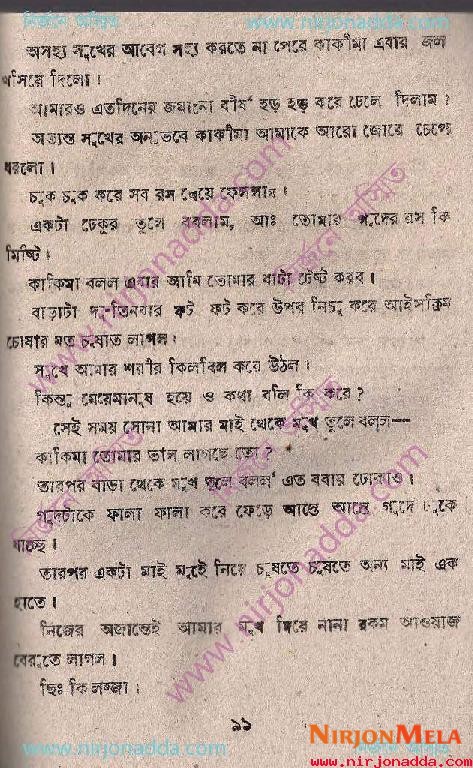 www.nirjonadda.com
অসহ্য সুখের আবেগ সহ্য করতে না পেরে কাকীমা এবার জল
খসিয়ে দিলো।
আমারও এতদিনের জমানো বীর্য হড় হড় করে ঢেলে দিলাম?
অত্যন্ত সুখের অনুভবে কাকীমা আমাকে আরো জোরে চেপে
ধরলো।
চুক চুক করে সব রস খেয়ে ফেললাম।
একটা ঢেকুর তুলে বললাম, আঃ তোমার গুদের রস কি
মিষ্টি।
কাকিমা বলল এবার আমি তোমার বাটা টেষ্ট করব।
বাড়াটা দু-তিনবার ফট ফট করে উপর নিচু করে আইসক্রিম
চোষার মত চুষতে লাগল।
সুখে আমার শরীর কিলবিল করে উঠল।
কিন্তু মেয়েমানুষ হয়ে ও কথা বলি কি করে?
সেই সময় সোনা আমার মাই থেকে মুখ তুলে বলল—
কাকিমা তোমার ভাল লাগছে তো?
তারপর বাড়া থেকে মুখ তুলে বলল' এত ববার ঢোকাও।
গুদটাকে ফালা ফালা করে ফেড়ে আস্তে আস্তে গুদে ঢুকে
যাচ্ছে।
তারপর একটা মাই মুখে নিয়ে চুষতে চুষতে অন্য মাই এক
হাতে।
নিজের অজান্তেই আমার মুখ দিয়ে নানা রকম আওয়াজ
বেরুতে লাগল।
ছিঃ কি লজ্জা।
১১
www.nirjonadda.com
NIRJONMELA
www.nirjonadda.com